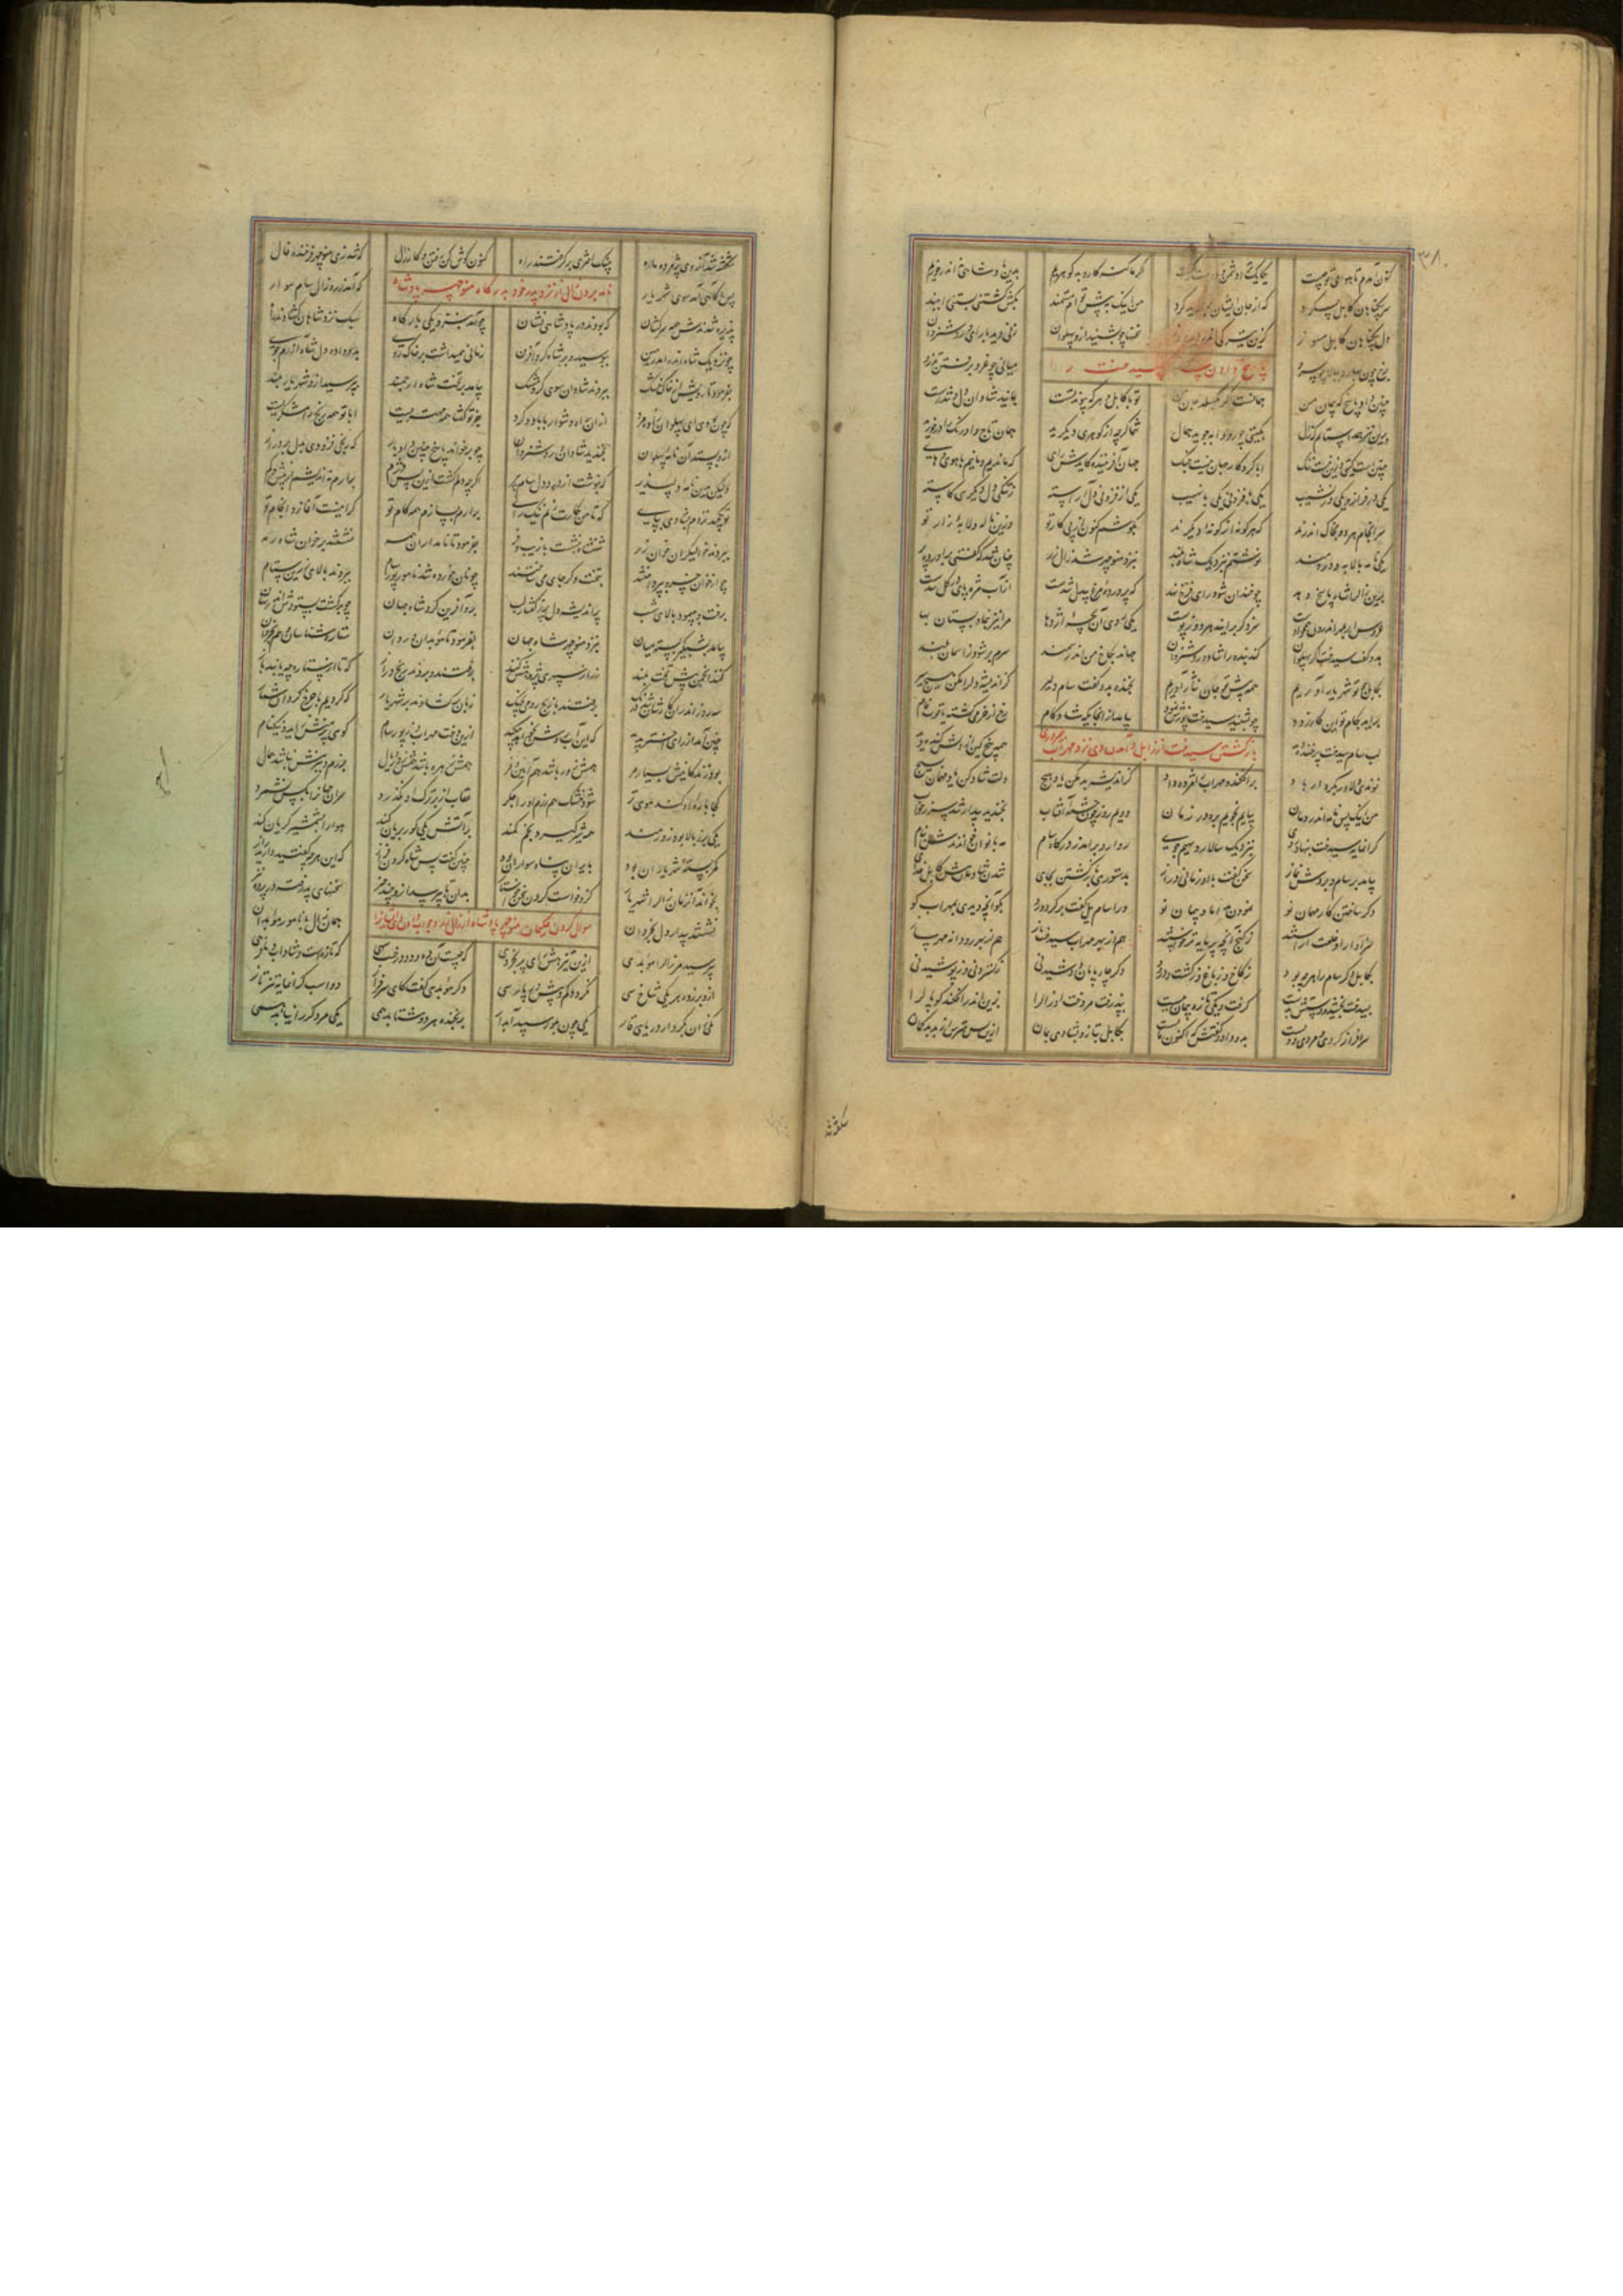 ۳۸
کنون آمدم تا هوای تو چیست یکایک ترا دشمن و دوست کیست اگر ما گنه کار و بد گوهریم بدین پادشاهی نه اندر خوریم
سر بیگناهان کابل که از جان ایشان گرد من اینک به پیش توام مستمند بکش کشتنی بستنی را ببند
دل بیگناهان کابل مسوز کزین تیرگی اندر آید بروز سخنها چو بشنید ازو پهلوان زنی دید با رای و روشن روان
برخ چون بهار و ببالا چو سرو میانی چو غرو و برفتن تذرو
پاسخ دادن سام سیندخت را
چنین داد پاسخ که پیمان من همانست اگر بگسلد جان من تو با کابل و هر که پیوند تست بمانید شادان دل و تندرست
بدین نیز همداستانم که زال بگیتی چو رودابه جوید همال شما گرچه از گوهری دیگرید همان تاج و اورنگ را درخورید
چنین است گیتی وزین ننگ نیست ابا کردگار جهان جنگ نیست جهان آفریننده رای که ماندیم و مانیم با هوی و های
یکی بر فراز و یکی در نشیب یکی با فزونی یکی با نهیب یکی از فزونی دل آراسته ز تنگی دل دیگری کاسته
سرانجام هر دو بخاک اندرند که هر گونه از گونه دیگرند بکوشم کنون از پی کار تو وزین ناله و لابه زار تو
یکی نامه با لابه و دردمند نوشتم بنزدیک شاه بلند بنزد منوچهر شد زال زر چنان شد که گفتی برآورد پر
بدین زال را شاه پاسخ دهد چو خندان شود رای فرخ نهد که پرورده مرغ بیدل شدست از آب مژه پای در گل شدست
عروس ار بمهر اندرون همچو اوست سزد گر برآیند هر دو ز پوست یکی روی آن بچه اژدها مرا نیز بنمای و بستان بها
بدو گفت سیندخت اگر پهلوان کند بنده را شاد و روشن روان چماند بکاخ من اندر سمند سرم بر شود ز آسمان بلند
بکابل چو تو شهریار آوریم همه پیش تو جان نثار آوریم بخنده بدو گفت سام دلیر کز اندیشه دل را مکن هیچ سیر
برآید بکام تو این کار زود چو بشنید سیندخت پوزش نمود بیامد از آنجایگه شادکام رخ از خرمی گشته یاقوت فام
لب سام سیندخت پر خنده دید همه بیخ کین از دلش کنده دید
بازگشتن سیندخت از زابل و آمدن وی نزد مهراب
نوندی دلاور بکردار باد برافکند و مهراب را مژده داد کز اندیشه بد مکن یاد هیچ دلت شاد کن کار مهمان بسیج
من اینک پس نامه اندر دمان بیایم نجویم بره در زمان دویم روز چون چشمه آفتاب بجنبید و بیدار شد سر ز خواب
گرانمایه سیندخت بنهاد روی بنزدیک سالار دیهیم جوی روارو برآمد ز درگاه سام مه بانوان خواندندش بنام
بیامد بر سام و بردش نماز سخن گفت با او زمانی دراز بدستوری بازگشتن بجای شدن شادمان پیش کابل خدای
دگر ساختن کار مهمان نو نمودن بداماد پیمان نو ورا سام یل گفت برگرد و رو بگو آنچه دیدی بمهراب گو
سزاوار او خلعت آراستند ز گنج آنچه پرمایه تر خواستند هم از بهر مهراب و سیندخت باز هم از بهر رودابه
بکابل دگر سام را هرچه بود ز کاخ و ز باغ و ز کشت و درود دگر چارپایان دوشیدنی ز گستردنی و ز پوشیدنی
بسیندخت بخشید و دستش بدست گرفت و یکی تازه پیمان ببست پذیرفت مر دخت او زال را بزین اندر افکند گوپال را
سرافراز گردی و مردی دویست بدو داد و گفتش که اکنون مایست بکابل بتاز و بشادی بمان ازین پس مترس از بد بدگمان
شکفته شد
شکفته شد آن روی پژمرده ماه به نیک اختری برگرفتند راه کنون گوش کن رفتن و کار زال که شد زی منوچهر فرخنده فال
نامه بردن زال از نزد پدر خود بدرگاه منوچهر پادشاه
پس آگاهی آمد سوی شهریار که آمد ز ره زال سام سوار
پذیره شدندش همه سرکشان که بودند در پادشاهی نشان چو آمد بنزدیکی بارگاه سبک نزد شاهش گشادند راه
چو نزدیک شاه اندر آمد زمین ببوسید و بر شاه کرد آفرین زمانی همیداشت بر خاک روی بدو داد دل شاه آزرم جوی
بفرمود تا رویش از خاک خشک ببردند شادان سوی گرد مشک بیامد بر تخت شاه ارجمند بپرسید ازو شهریار بلند
که چون بودی ای پهلوان زاده مرد ازان راه دشوار با باد و گرد بفر تو گفتا همه بهتریست ابا تو همه رنج رامشگریست
ازو بستد آن نامه پهلوان بخندید شادان و روشن روان چو برخواند پاسخ چنین داد باز که رنجی فزودی بدل بر دراز
ولیکن بدین نامه دلپذیر که بنوشت از درد دل سام پیر اگرچه دلم گشت ازین پس دژم برآرم نه اندیشم از بیش و کم
تو یکچند نزدم بشادی بپای که تا من بکارت زنم نیک رای برآرم بسازم همه کام تو گر اینست آغاز و انجام تو
ببردند خوالیگران خوان زر شهنشه نشست با زیب و فر بفرمود تا نامداران همه نشستند بر خوان شاه رمه
چو از خوان خسرو بپرداختند بتخت دگر جای می ساختند چو نان خورده شد نامور پور سام ببردند بالای زرین ستام
برفت و بپیمود بالای شب پر اندیشه دل پر ز گفتار لب برو آفرین کرد شاه جهان چو برگشت بستودش اندر نهان
بیامد بشبگیر بسته میان بنزد منوچهر شاه جهان بفرمود تا موبدان و ردان ستاره شناسان و هم بخردان
کنند انجمن پیش تخت بلند ز راز سپهری پژوهش کنند برفتند و بردند رنج دراز که تا از ستاره چه یابند باز
سه روز اندران کارشان شد درنگ برفتند با زیج رومی بچنگ زبان برگشادند بر شهریار که کردیم با چرخ گردان شمار
چنین آمد از رای اختر پدید که این آب روشن بخواهد دوید ازین دخت مهراب و از پور سام گوی پرمنش زاید و نیکنام
بود زندگانیش بسیار مر همش زور باشد هم آیین و فر همش برز باشد همش شاخ و یال برزم و ببزمش نباشد همال
کجا باره او کند موی تر شود خشک هم رزم او را جگر عقاب از بر ترگ او نگذرد سران جهان را بکس نشمرد
یکی برز بالا بود زورمند همه شیر گیرد بخم کمند بر آتش یکی گور بریان کند هوا را بشمشیر گریان کند
کمر بسته شهریاران بود بایران پناه سواران بود چنین گفت پس شاه گردن فراز که این هرچه گفتید دارید راز
بخواند آنزمان زال را شهریار کزو خواست کردن سخن خواستار بدان تا بپرسد ازو چند چیز سخنهای پوشیده در پرده نیز
نشستند بیدار دل بخردان همان زال با نامور موبدان
سوال کردن حکیمان منوچهر پادشاه از زال زر و جواب دادن ایشانرا
بپرسید مر زال را موبدی ازین تیزهش رای بین بخردی که چیست آن ده و دو درخت سهی که تازه است و شاداب با فرهی
ازو برزده هر یکی شاخ سی نگردد کم و بیش در پارسی دگر موبدی گفت کای سرفراز دو اسب گرانمایه تیزتاز
یکی زان بکردار دریای قار یکی چون بلور سپید آبدار هر دو یکی مر دگر را